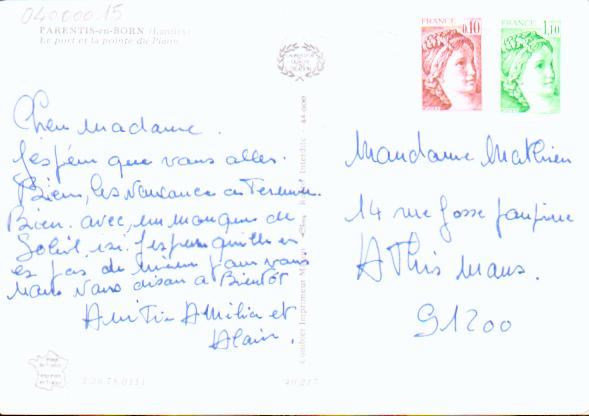 04000015
PARENTIS-en-BORN (Landes)
Le port et la pointe du Piaou
FRANCE
0,10
FRANCE
1,10
Cher Madame.
Jespér que vous alles.
Biens, les Vancance a Termine
Bien. avec, un manque de
Soleil, ici. Jesper quil en
es pas de mieux pour vous
Nous Vous disan a Bientôt
Amitié Amilia et
Alain.
Mandame Mathieu
14 rue Gosse fanpine
AThis Mans.
91200
Combier Imprimeur Mâcon
Interdite
2.20.78.0111
40.217